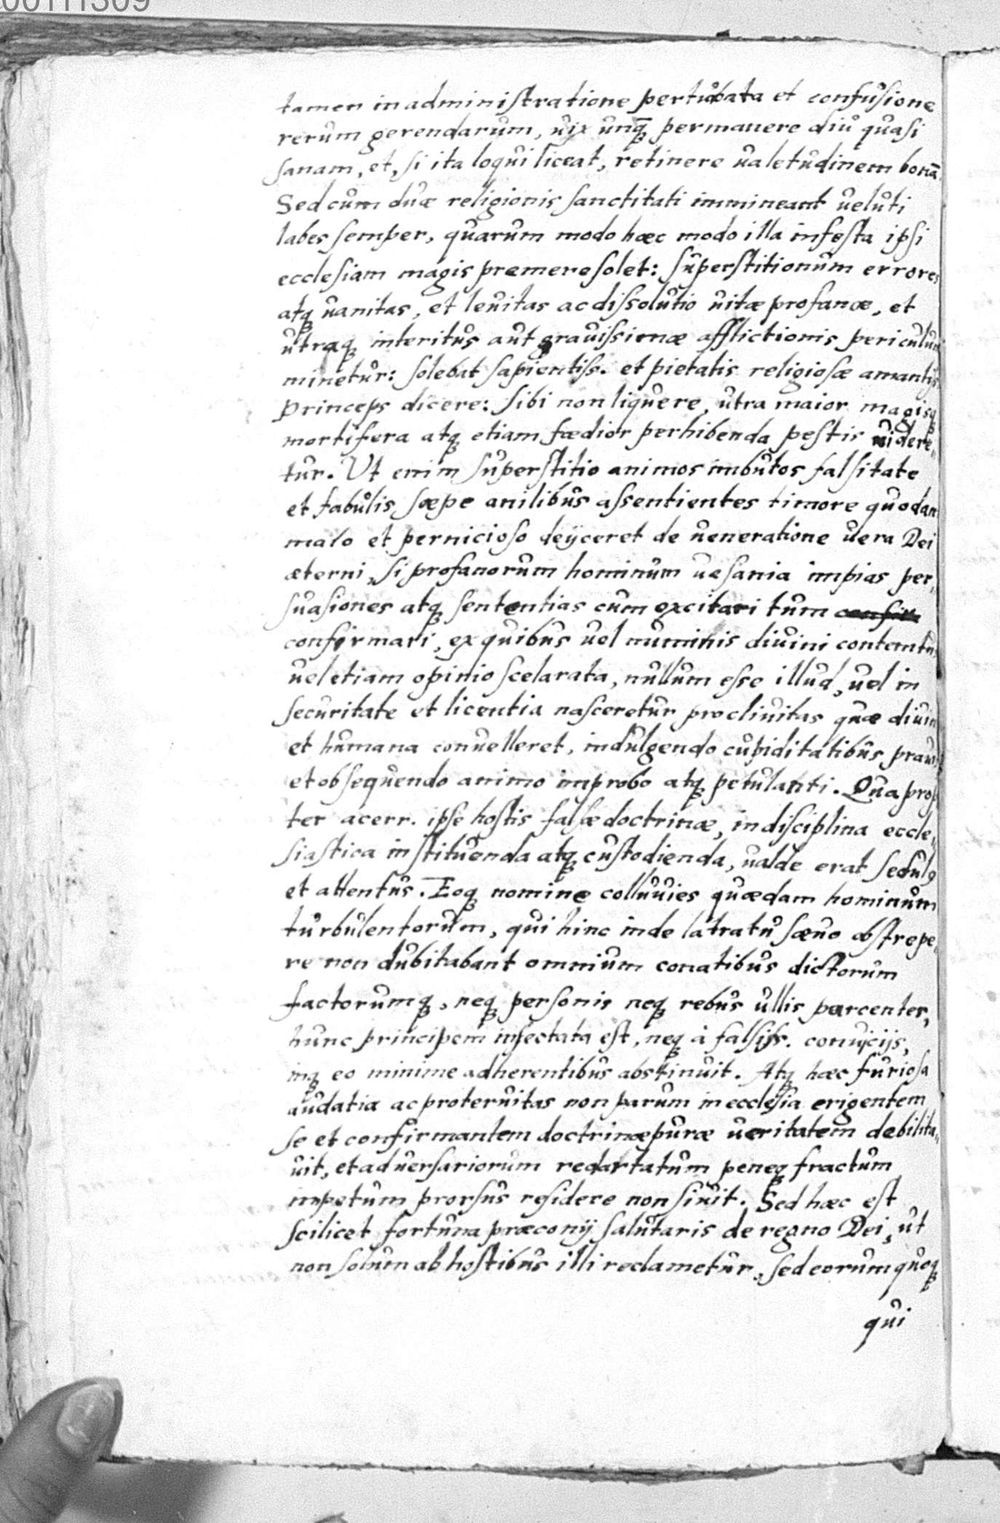 00111309
tamen in administratione pertubata et confusione
rerum gerendarum, uix unq̃ permanere diu quasi
sanam, et, si ita loqui liceat, retinere ualetudinem bonã.
Sed cum duæ religionis sanctitati immineant ueluti
labes semper, quarum modo hæc modo illa infesta ipsi
ecclesiam magis premere solet: superstitionum errores
atq; uanitas, et leuitas ac dissolutio uitæ profanæ, et
utraq; interitus aut grauissimæ afflictionis periculum
minetur: solebat sapientiss. et pietatis religiosæ amantis
princeps dicere: sibi non liquere, utra maior magisq;
mortifera atq; etiam fœdior perhibenda pestis uidere„
tur. Ut enim superstitio animos imbutos falsitate
et fabulis sæpe anilibus assentientes timore quodam
malo et pernicioso deijceret de ueneratione uera Dei
æterni, si profanorum hominum uesania impias per„
suasiones atq; sententias cum excitari tum confir
confirmari, ex quibus uel numinis diuini contemtus
uel etiam opinio scelarata, nullum esse illud, uel in
securitate et licentia nasceretur procliuitas quæ diuina
et humana conuelleret, indulgendo cupiditatibus prauis
et obsequendo animo improbo atq; petulanti. Qua prop
ter acerr. ipse hostis falsæ doctrinæ, in disciplina eccle„
siastica instituenda atq; custodienda, ualde erat sedulo
et attentus. Eoq; nomine colluuies quædam hominum
turbulentorum, qui hinc inde latratu sæuo obstrepe„
re non dubitabant omnium conatibus dictorum
factorumq;, neq; personis neq; rebus ullis parcenter,
hunc principem insectata est, neq; à falsiss. conuijcijs,
inq; eo minime adherentibus abstinuit. Atq; hæc furiosa
audatia ac proteruitas non parum in ecclesia erigentem
se et confirmantem doctrinæ puræ ueritatem debilita„
uit, et aduersariorum redartatum peneq; fractum
impetum prorsus residere non siuit. Sed hæc est
scilicet fortuna præconij salutaris de regno Dei, ut
non solum ab hostibus illi reclametur, sed eorum quoq;
qui